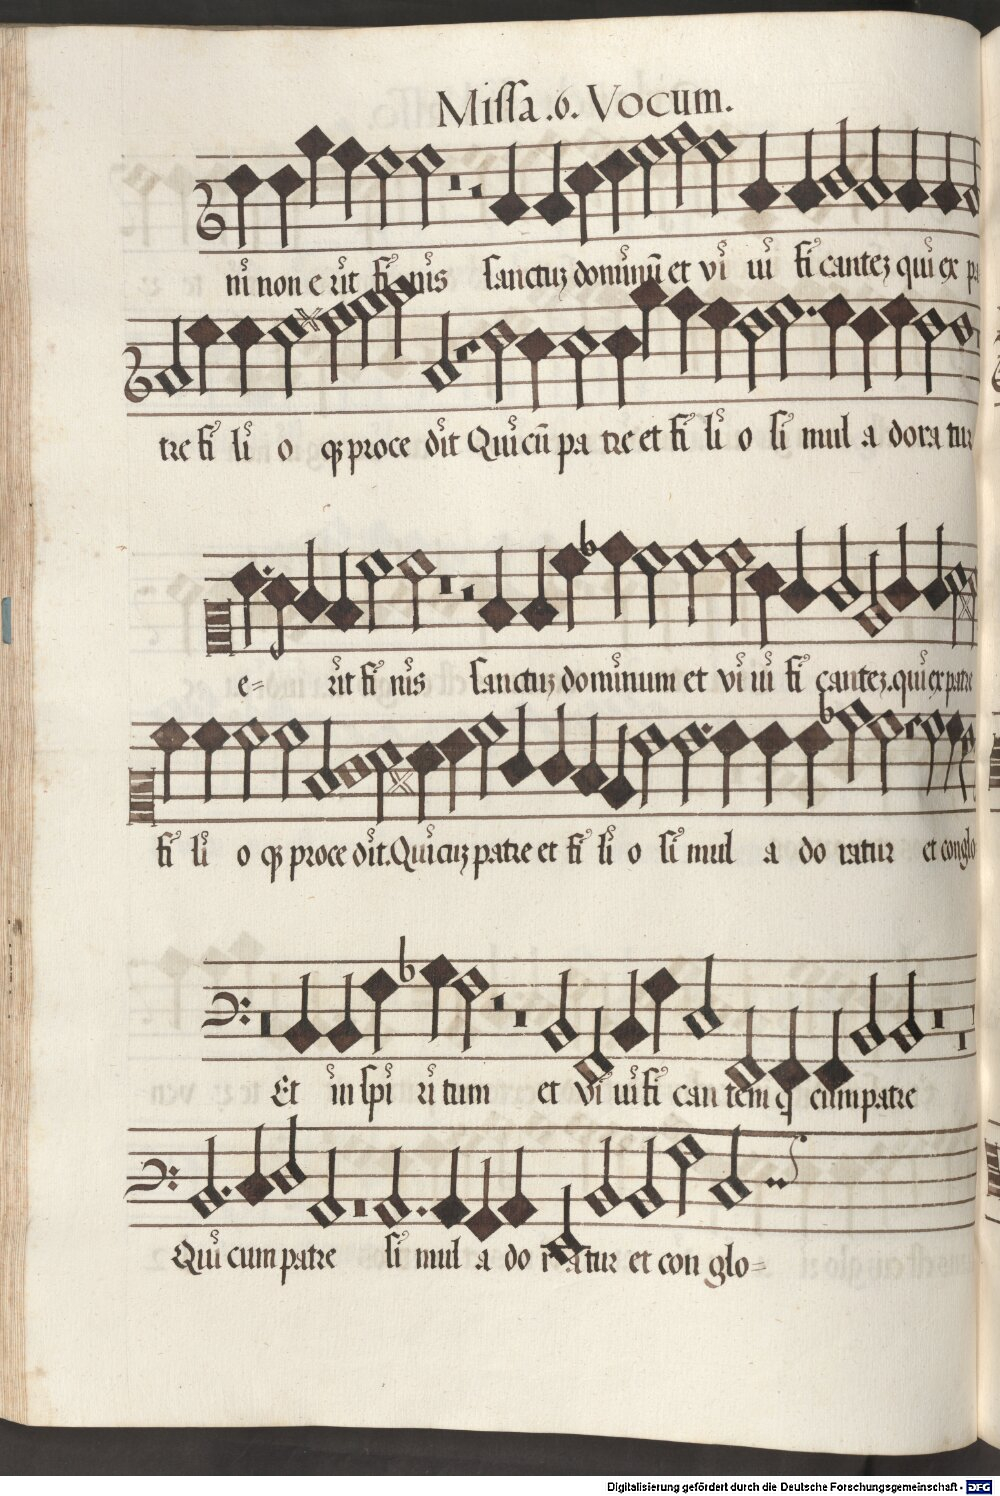 Missa .6. Vocum.
ni non e rit fi nis sanctuz dominū et vi vi fi cantez qui ex pa
tre fi li o qz proce dit Qui cū pa tre et fi li o si mul a dora tur
e= rit fi nis sanctuz dominum et vi vi fi cantez. qui ex patre
fi li o qz proce dit. Qui cuz patre et fi li o si mul a do ratur et conglo
Et in spi ri tum et vi vi fi can tem q cum patre
Qui cum patre si mul a do ratur et con glo=
Digitalisierung gefördert durch die Deutsche Forschungsgemeinschaft - DFG